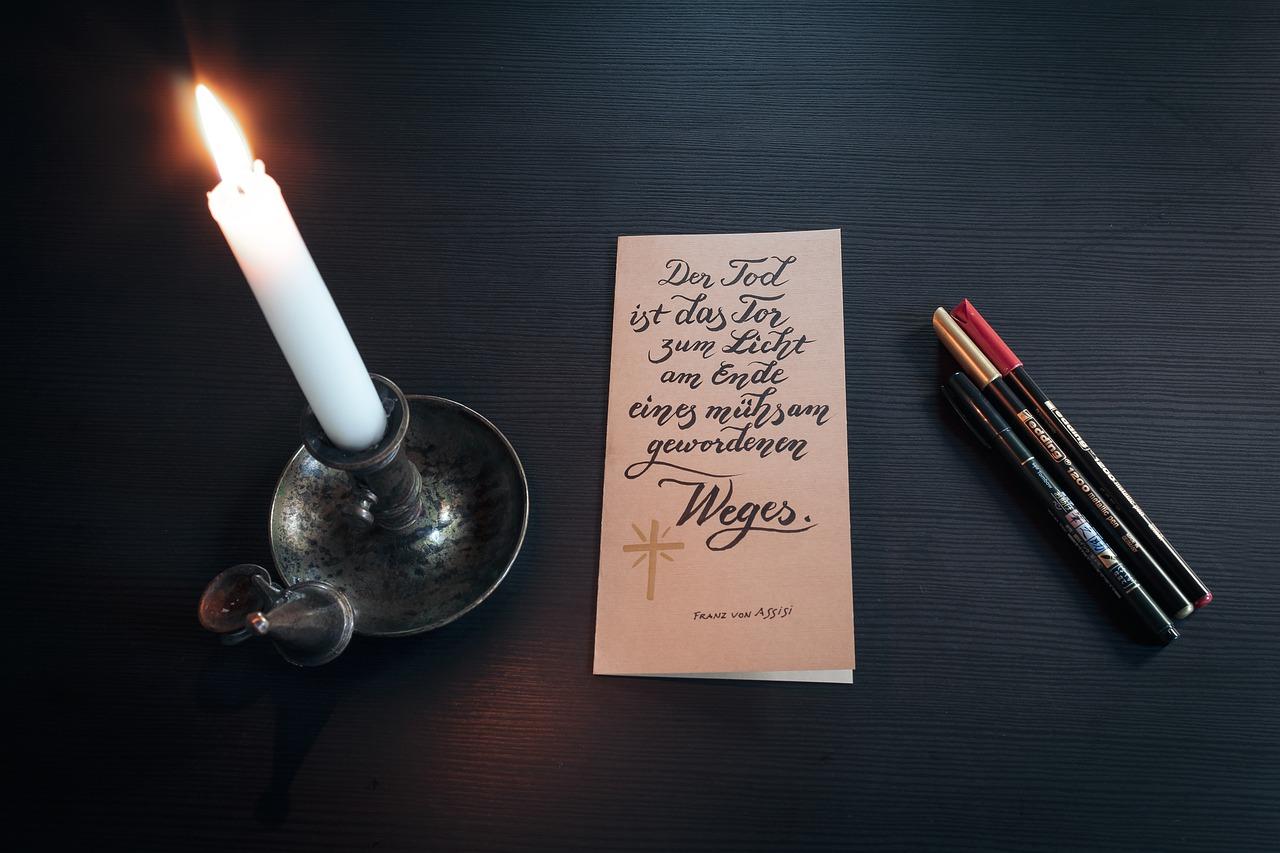 Der Tod
ist das Tor
zum Licht
am Ende
eines mühsam
gewordenen
Weges.
FRANZ VON ASSISI
edding
edding
1200 metallic pen